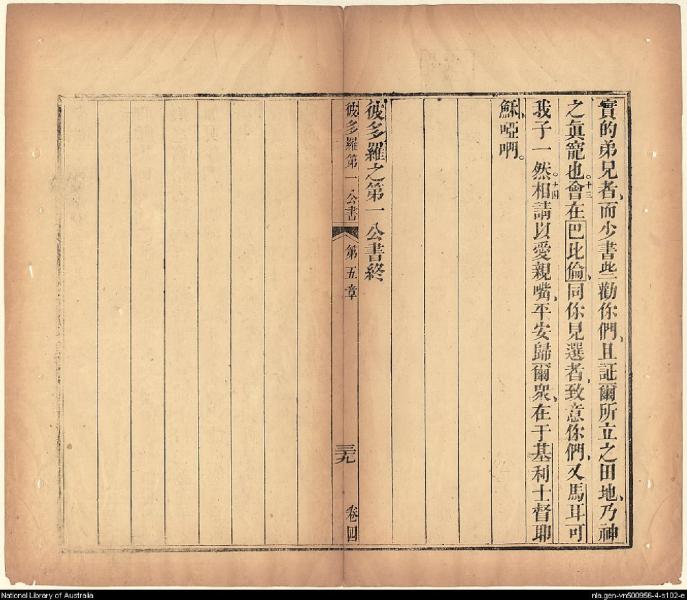 實的弟兄者、而少書些勸你們、且証爾所立之田地、乃神
之眞寵也。十三會在巴比倫、同你見選者、致意你們、又馬耳可
我子一然。十四相請以愛親嘴、平安歸爾衆、在于基利士督耶
穌、啞唎。
彼多羅之第一公書終
彼多羅第一公書 第五章 三九 卷四
National Library of Australia
nla.gen-vn500956-4-s102-e